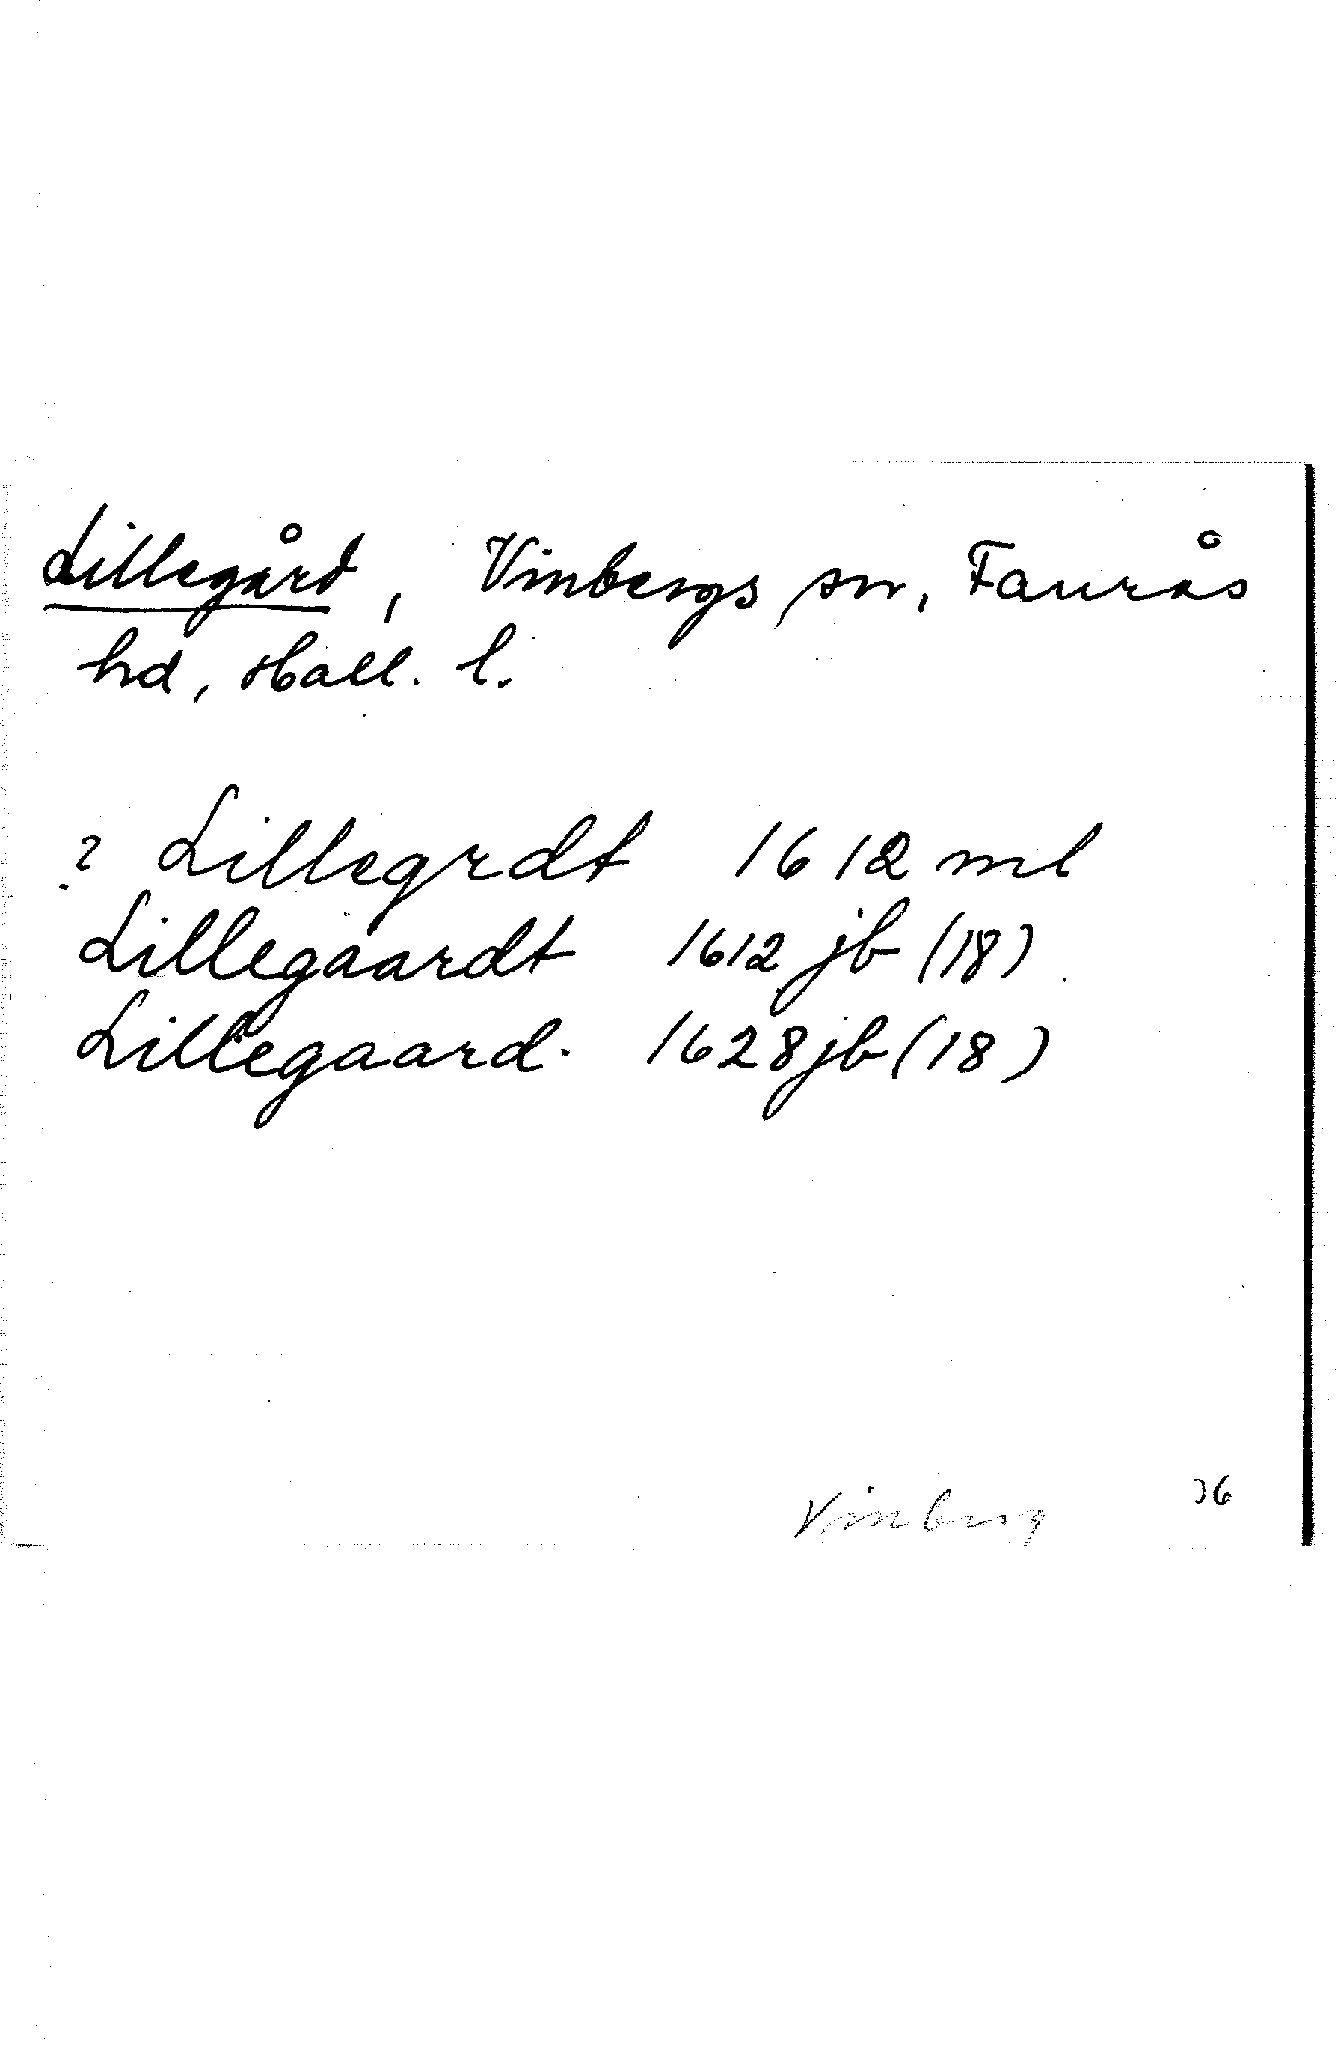 Lillegård, Vinbergs sn, Faurås
hd, Hall. l.
? Lillegrdt 1612 ml
Lillegaardt 1612 jb (18)
Lillegaard. 1628 jb (18)
Vinberg 36